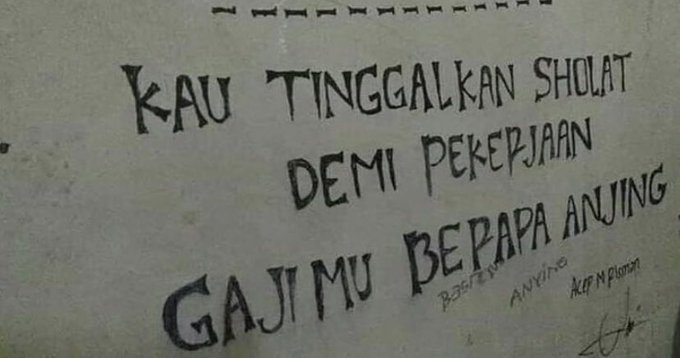 KAU TINGGALKAN SHOLAT
DEMI PEKERJAAN
GAJIMU BERAPA ANJING
ANYING